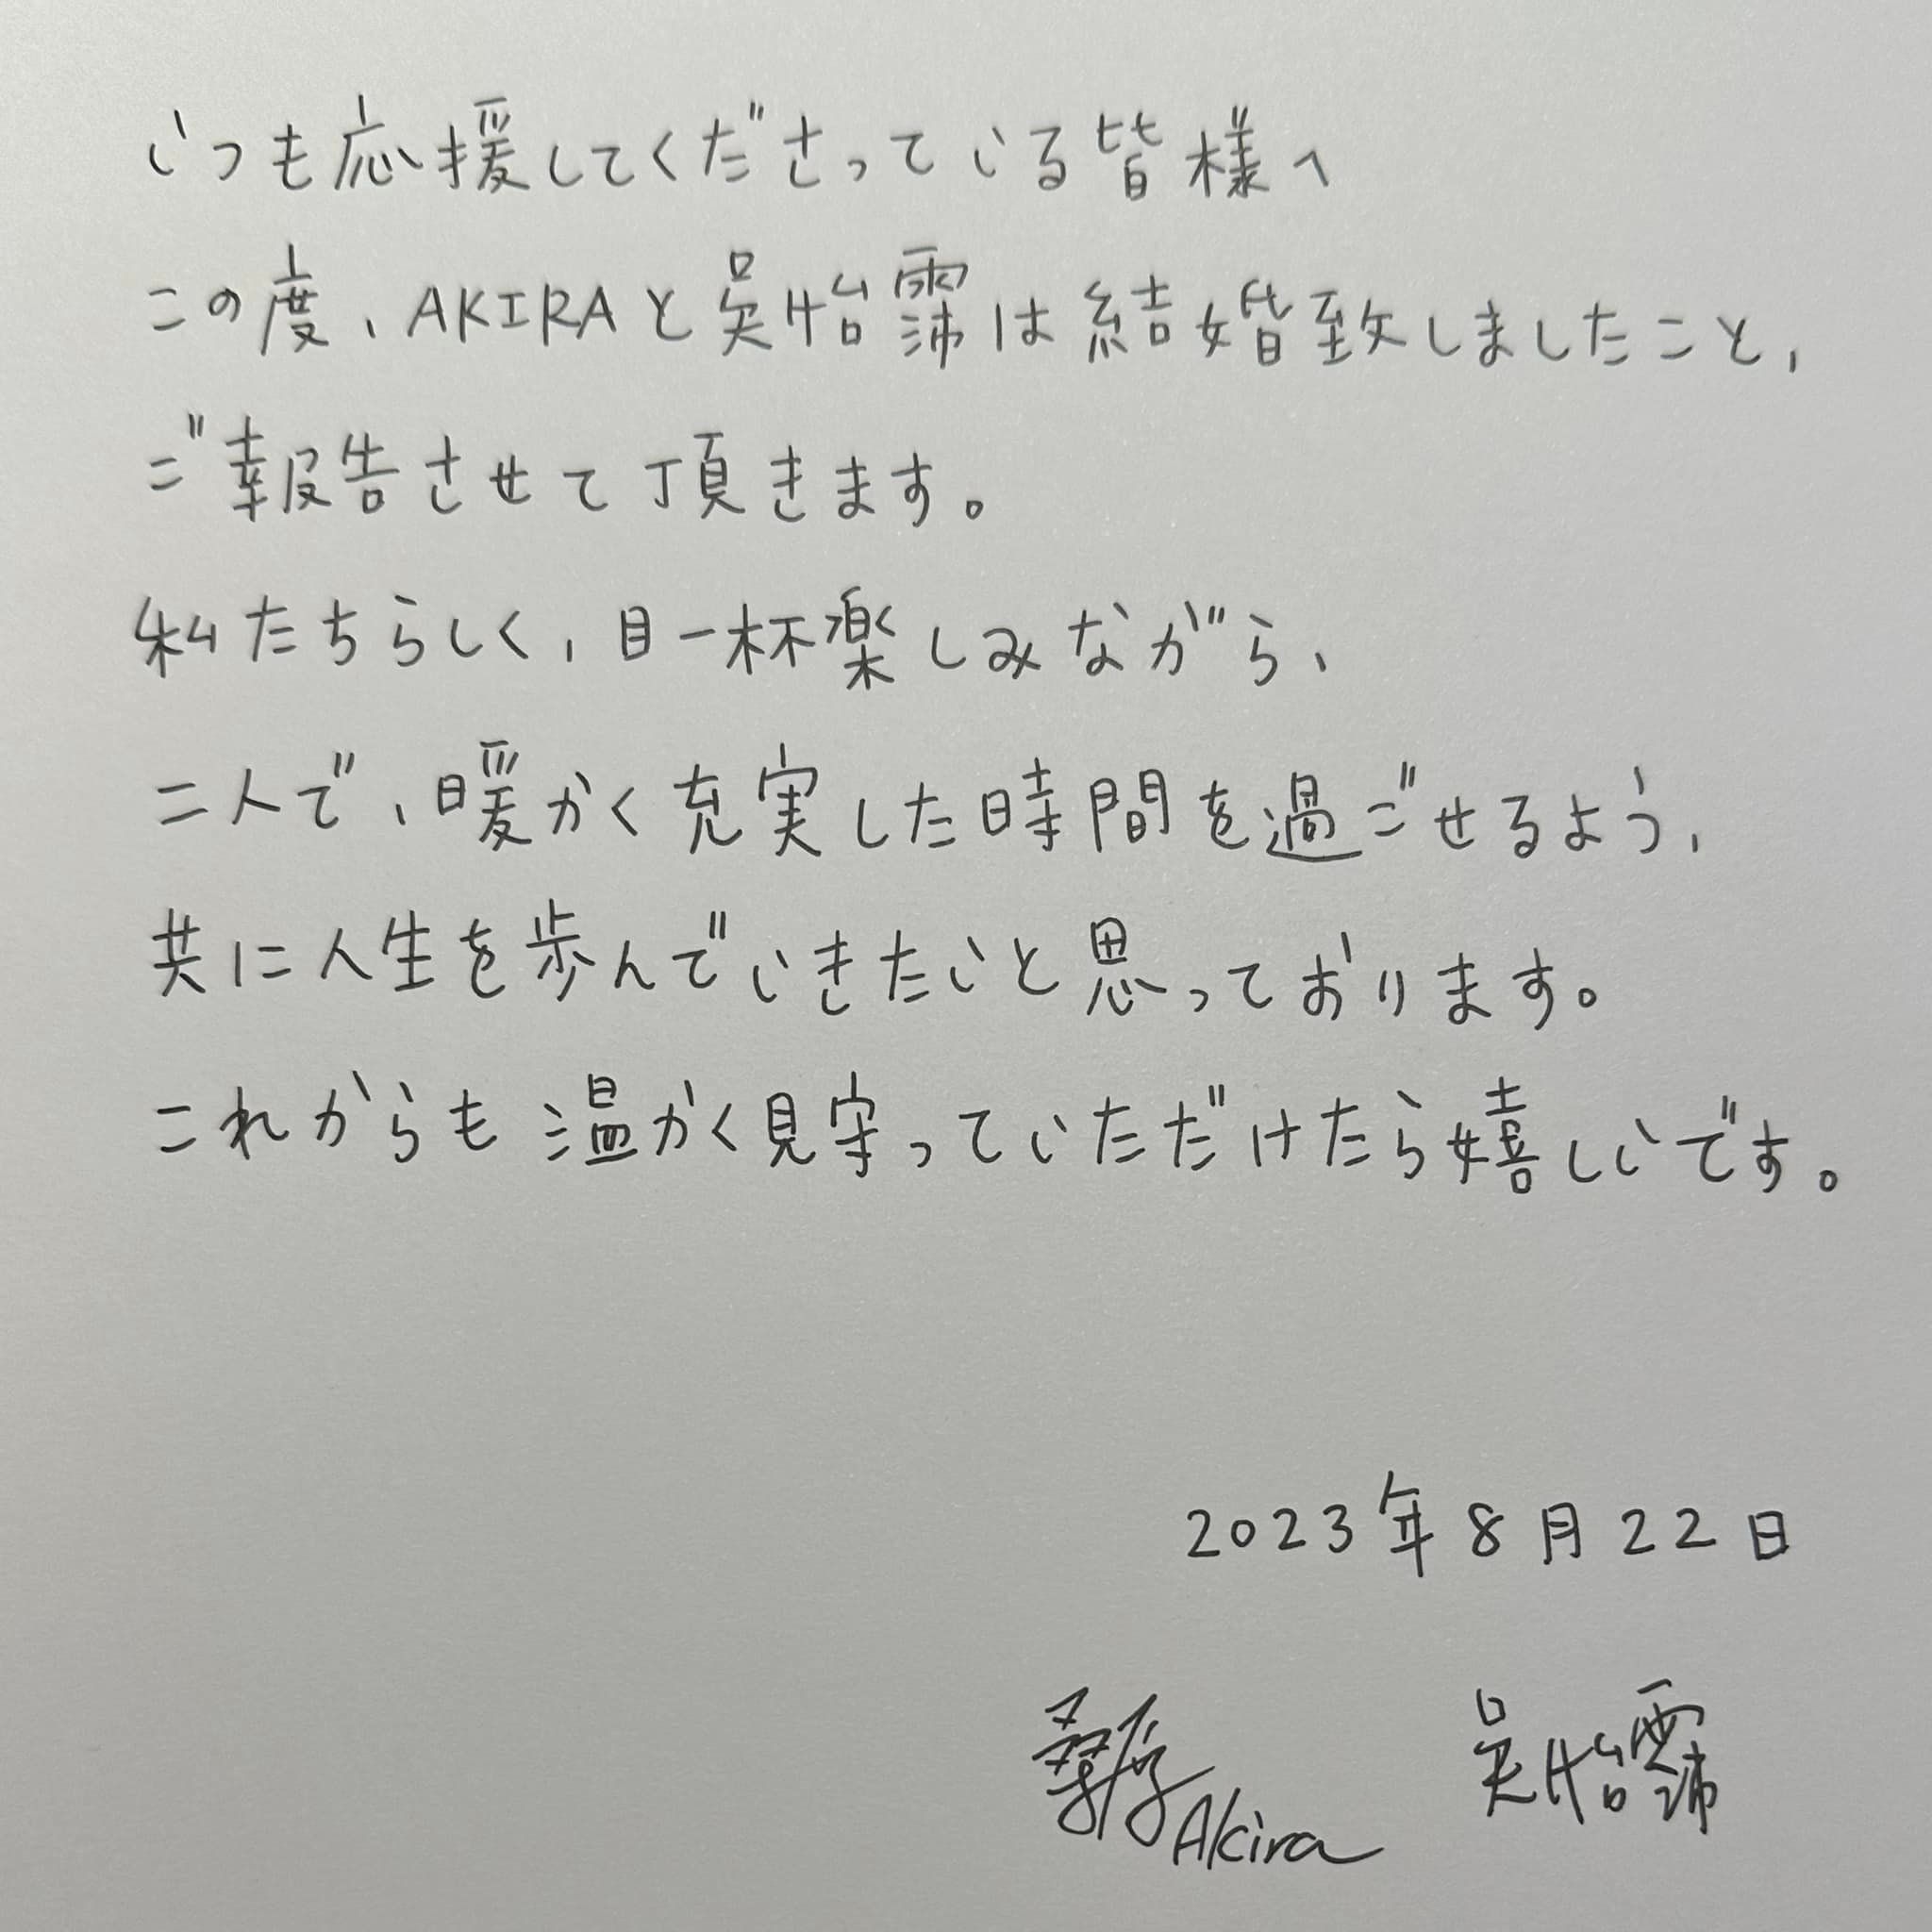 いつも応援してくださっている皆様へ
この度、AKIRAと吳怡霈は結婚致しましたこと、
ご報告させて頂きます。
私たちらしく、目一杯楽しみながら、
二人で、暖かく充実した時間を過ごせるよう、
共に人生を歩んでいきたいと思っております。
これからも温かく見守っていただけたら嬉しいです。
2023年8月22日
Akira 吳怡霈